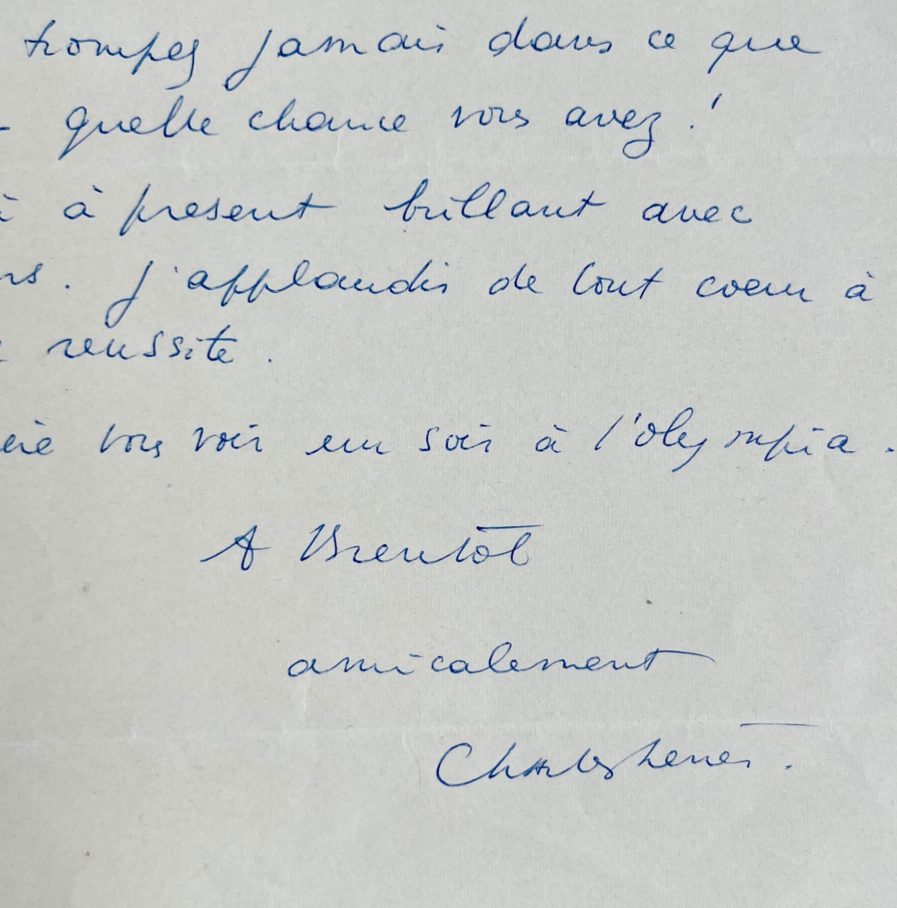 trompez jamais dans ce que
- quelle chance vous avez !
à présent brillant avec
ns. J'applaudis de tout coeur à
reussite.
vous voir un soir à l'olympia.
A Bientôt
amicalement
Charles